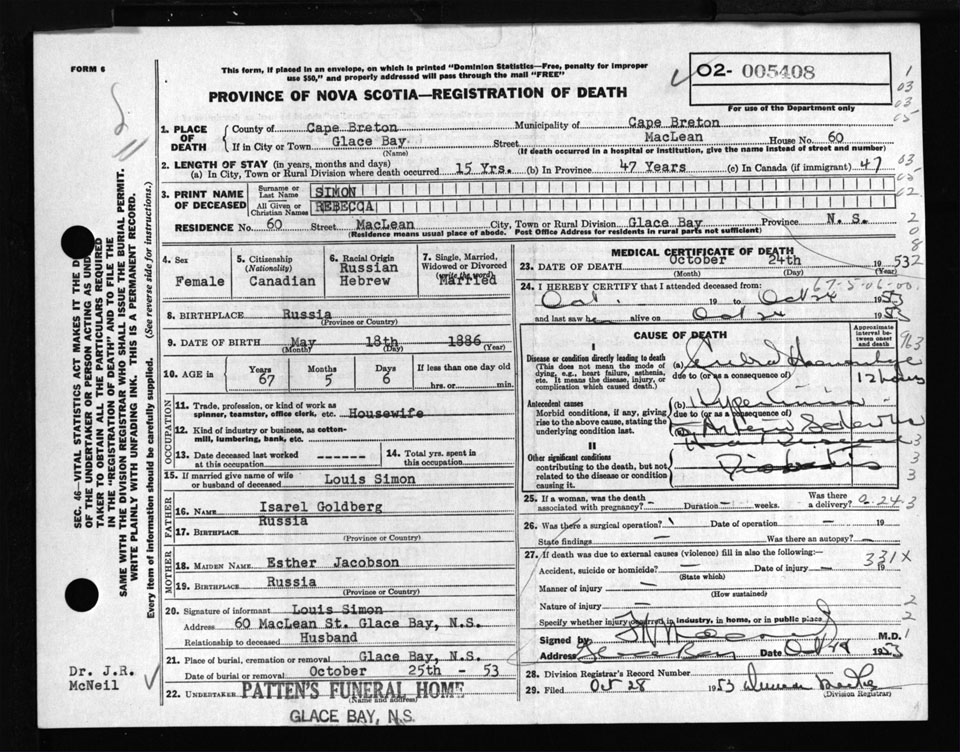 FORM 6
This form, if placed in an envelope, on which is printed "Dominion Statistics—Free, penalty for improper
use $50," and properly addressed will pass through the mail "FREE"
PROVINCE OF NOVA SCOTIA—REGISTRATION OF DEATH
O2- 005408
For use of the Department only
1. PLACE OF DEATH
County of Cape Breton Municipality of Cape Breton
If in City or Town Glace Bay Street MacLean House No. 60
(Name) (If death occurred in a hospital or institution, give the name instead of street and number)
2. LENGTH OF STAY (in years, months and days)
(a) In City, Town or Rural Division where death occurred 15 Yrs. (b) In Province 47 Years (c) In Canada (if immigrant) 47
3. PRINT NAME OF DECEASED
Surname or Last Name SIMON
All Given or Christian Names REBECCA
RESIDENCE No. 60 Street MacLean City, Town or Rural Division Glace Bay Province N. S.
(Residence means usual place of abode. Post Office Address for residents in rural parts not sufficient)
4. Sex
Female
5. Citizenship
(Nationality)
Canadian
6. Racial Origin
Russian
Hebrew
7. Single, Married,
Widowed or Divorced
(write the word)
Married
8. BIRTHPLACE Russia
(Province or Country)
9. DATE OF BIRTH May 18th 1886
(Month) (Day) (Year)
10. AGE in
Years Months Days If less than one day old
67 5 6 hrs. or min.
OCCUPATION
11. Trade, profession, or kind of work as
spinner, teamster, office clerk, etc. Housewife
12. Kind of industry or business, as cotton-
mill, lumbering, bank, etc.
13. Date deceased last worked
at this occupation ------
14. Total yrs. spent in
this occupation
15. If married give name of wife
or husband of deceased Louis Simon
FATHER
16. NAME Isarel Goldberg
17. BIRTHPLACE Russia
(Province or Country)
MOTHER
18. MAIDEN NAME Esther Jacobson
19. BIRTHPLACE Russia
(Province or Country)
20. Signature of informant Louis Simon
Address 60 MacLean St. Glace Bay, N.S.
Relationship to deceased Husband
21. Place of burial, cremation or removal Glace Bay, N.S.
Date of burial or removal October 25th - 53
22. UNDERTAKER PATTEN'S FUNERAL HOME
(Name and address)
GLACE BAY, N.S.
MEDICAL CERTIFICATE OF DEATH
23. DATE OF DEATH October 24th 1953
(Month) (Day) (Year)
67-5-06-00
24. I HEREBY CERTIFY that I attended deceased from:
Oct. 19 to Oct 24 1953
and last saw her alive on Oct 24 1953
CAUSE OF DEATH
Approximate
interval be-
tween onset
and death
I
Disease or condition directly leading to death
(This does not mean the mode of
dying, e.g., heart failure, asthenia,
etc. It means the disease, injury, or
complication which caused death.)
(a) Cerebral Hemorrhage
due to (or as a consequence of) 12 hours
Antecedent causes
Morbid conditions, if any, giving
rise to the above cause, stating the
underlying condition last.
(b) Hypertension
due to (or as a consequence of)
(c)
II
Other significant conditions
contributing to the death, but not
related to the disease or condition
causing it.
Diabetis
25. If a woman, was the death
associated with pregnancy? Duration weeks.
Was there
a delivery?
26. Was there a surgical operation? Date of operation 19
State findings Was there an autopsy?
27. If death was due to external causes (violence) fill in also the following:—
331X
Accident, suicide or homicide? Date of injury 19
(State which)
Manner of injury
(How sustained)
Nature of injury
Specify whether injury occurred in industry, in home, or in public place
Signed by M.D.
Address Glace Bay Date Oct 1953
28. Division Registrar's Record Number
29. Filed Oct 28 1953
(Division Registrar)
SEC. 46—VITAL STATISTICS ACT MAKES IT THE D
OF THE UNDERTAKER OR PERSON ACTING AS UNDER
TAKER TO OBTAIN ALL THE PARTICULARS REQUIRED
IN THE "REGISTRATION OF DEATH" AND TO FILE THE
SAME WITH THE DIVISION REGISTRAR WHO SHALL ISSUE THE BURIAL PERMIT.
WRITE PLAINLY WITH UNFADING INK. THIS IS A PERMANENT RECORD.
Every item of information should be carefully supplied. (See reverse side for instructions.)
Dr. J.R.
McNeil